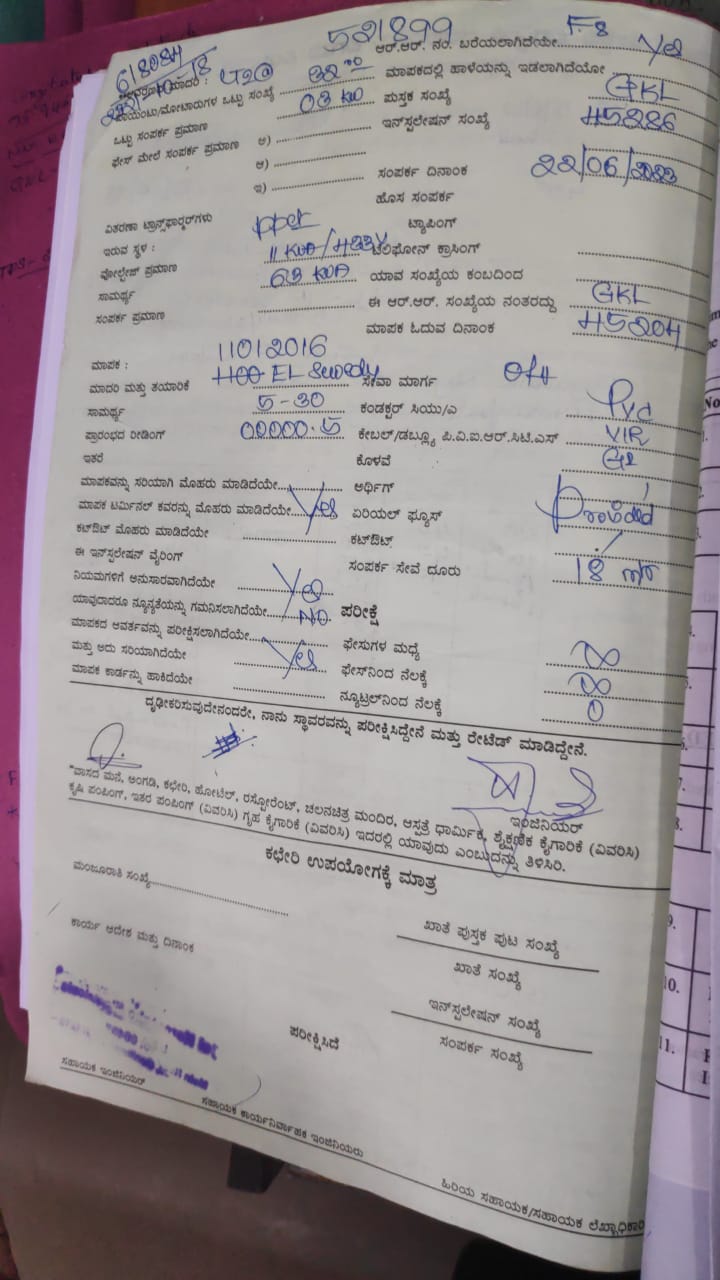 521899 F.8
ಆರ್.ಆರ್. ನಂ. ಬರೆಯಲಾಗಿದೆಯೇ Yes
ಮಾದರಿ : LT2@
ಮಾಪಕದಲ್ಲಿ ಹಾಳೆಯನ್ನು ಇಡಲಾಗಿದೆಯೋ
ಪಾಯಿಂಟು/ಮೋಟಾರುಗಳ ಒಟ್ಟು ಸಂಖ್ಯೆ 32.00 ಪುಸ್ತಕ ಸಂಖ್ಯೆ GKL
ಒಟ್ಟು ಸಂಪರ್ಕ ಪ್ರಮಾಣ 03 KW ಇನ್‌ಸ್ಪಲೇಷನ್ ಸಂಖ್ಯೆ 45286
ಫೇಸ್ ಮೇಲೆ ಸಂಪರ್ಕ ಪ್ರಮಾಣ ಅ)
ಆ) ಸಂಪರ್ಕ ದಿನಾಂಕ 22/06/2023
ಇ) ಹೊಸ ಸಂಪರ್ಕ
ವಿತರಣಾ ಟ್ರಾನ್ಸ್‌ಫಾರ್ಮರ್‌ಗಳು ಟ್ಯಾಪಿಂಗ್
ಇರುವ ಸ್ಥಳ : ಟೆಲಿಫೋನ್ ಕ್ರಾಸಿಂಗ್
ವೋಲ್ಟೇಜ್ ಪ್ರಮಾಣ 11 KVA/433V ಯಾವ ಸಂಖ್ಯೆಯ ಕಂಬದಿಂದ
ಸಾಮರ್ಥ್ಯ 63 KVA ಈ ಆರ್.ಆರ್. ಸಂಖ್ಯೆಯ ನಂತರದ್ದು GKL
ಸಂಪರ್ಕ ಪ್ರಮಾಣ ಮಾಪಕ ಓದುವ ದಿನಾಂಕ 45204
ಮಾಪಕ : 11012016
ಮಾದರಿ ಮತ್ತು ತಯಾರಿಕೆ EL Swedy ಸೇವಾ ಮಾರ್ಗ O/H
ಸಾಮರ್ಥ್ಯ 5-30 ಕಂಡಕ್ಟರ್ ಸಿಯು/ಎ Pvc
ಪ್ರಾರಂಭದ ರೀಡಿಂಗ್ 00000.5 ಕೇಬಲ್/ಡಬ್ಲ್ಯೂ ಪಿ.ವಿ.ಐ.ಆರ್.ಸಿ.ಟಿ.ಎಸ್ VIR
ಇತರೆ ಕೊಳವೆ GI
ಮಾಪಕವನ್ನು ಸರಿಯಾಗಿ ಮೊಹರು ಮಾಡಿದೆಯೇ ಅರ್ಥಿಗ್
ಮಾಪಕ ಟರ್ಮಿನಲ್ ಕವರನ್ನು ಮೊಹರು ಮಾಡಿದೆಯೇ Yes ಏರಿಯಲ್ ಫ್ಯೂಸ್ Provided
ಕಟ್‌ಔಟ್ ಮೊಹರು ಮಾಡಿದೆಯೇ ಕಟ್‌ಔಟ್
ಈ ಇನ್‌ಸ್ಪಲೇಷನ್ ವೈರಿಂಗ್ ಸಂಪರ್ಕ ಸೇವೆ ದೂರು 18 mtr
ನಿಯಮಗಳಿಗೆ ಅನುಸಾರವಾಗಿದೆಯೇ Yes
ಯಾವುದಾದರೂ ನ್ಯೂನ್ಯತೆಯನ್ನು ಗಮನಿಸಲಾಗಿದೆಯೇ No. ಪರೀಕ್ಷೆ
ಮಾಪಕದ ಆವರ್ತವನ್ನು ಪರೀಕ್ಷಿಸಲಾಗಿದೆಯೇ ಫೇಸುಗಳ ಮಧ್ಯೆ ∞
ಮತ್ತು ಅದು ಸರಿಯಾಗಿದೆಯೇ Yes ಫೇಸ್‌ನಿಂದ ನೆಲಕ್ಕೆ ∞
ಮಾಪಕ ಕಾರ್ಡನ್ನು ಹಾಕಿದೆಯೇ ನ್ಯೂಟ್ರಲ್‌ನಿಂದ ನೆಲಕ್ಕೆ 0
ದೃಢೀಕರಿಸುವುದೇನಂದರೇ, ನಾನು ಸ್ಥಾವರವನ್ನು ಪರೀಕ್ಷಿಸಿದ್ದೇನೆ ಮತ್ತು ರೇಟೆಡ್ ಮಾಡಿದ್ದೇನೆ.
ಇಂಜಿನಿಯರ್
"ವಾಸದ ಮನೆ, ಅಂಗಡಿ, ಕಛೇರಿ, ಹೋಟೆಲ್, ರಸ್ಟೋರೆಂಟ್, ಚಲನಚಿತ್ರ ಮಂದಿರ, ಆಸ್ಪತ್ರೆ ಧಾರ್ಮಿಕ, ಶೈಕ್ಷಣಿಕ ಕೈಗಾರಿಕೆ (ವಿವರಿಸಿ)
ಕೃಷಿ ಪಂಪಿಂಗ್, ಇತರ ಪಂಪಿಂಗ್ (ವಿವರಿಸಿ) ಗೃಹ ಕೈಗಾರಿಕೆ (ವಿವರಿಸಿ) ಇದರಲ್ಲಿ ಯಾವುದು ಎಂಬುದನ್ನು ತಿಳಿಸಿರಿ.
ಕಛೇರಿ ಉಪಯೋಗಕ್ಕೆ ಮಾತ್ರ
ಮಂಜೂರಾತಿ ಸಂಖ್ಯೆ ಖಾತೆ ಪುಸ್ತಕ ಪುಟ ಸಂಖ್ಯೆ
ಕಾರ್ಯ ಆದೇಶ ಮತ್ತು ದಿನಾಂಕ ಖಾತೆ ಸಂಖ್ಯೆ
ಇನ್‌ಸ್ಪಲೇಷನ್ ಸಂಖ್ಯೆ
ಪರೀಕ್ಷಿಸಿದೆ ಸಂಪರ್ಕ ಸಂಖ್ಯೆ
ಸಹಾಯಕ ಇಂಜಿನಿಯರ್
ಸಹಾಯಕ ಕಾರ್ಯನಿರ್ವಾಹಕ ಇಂಜಿನಿಯರು
ಹಿರಿಯ ಸಹಾಯಕ/ಸಹಾಯಕ ಲೆಕ್ಕಾಧಿಕಾರಿ